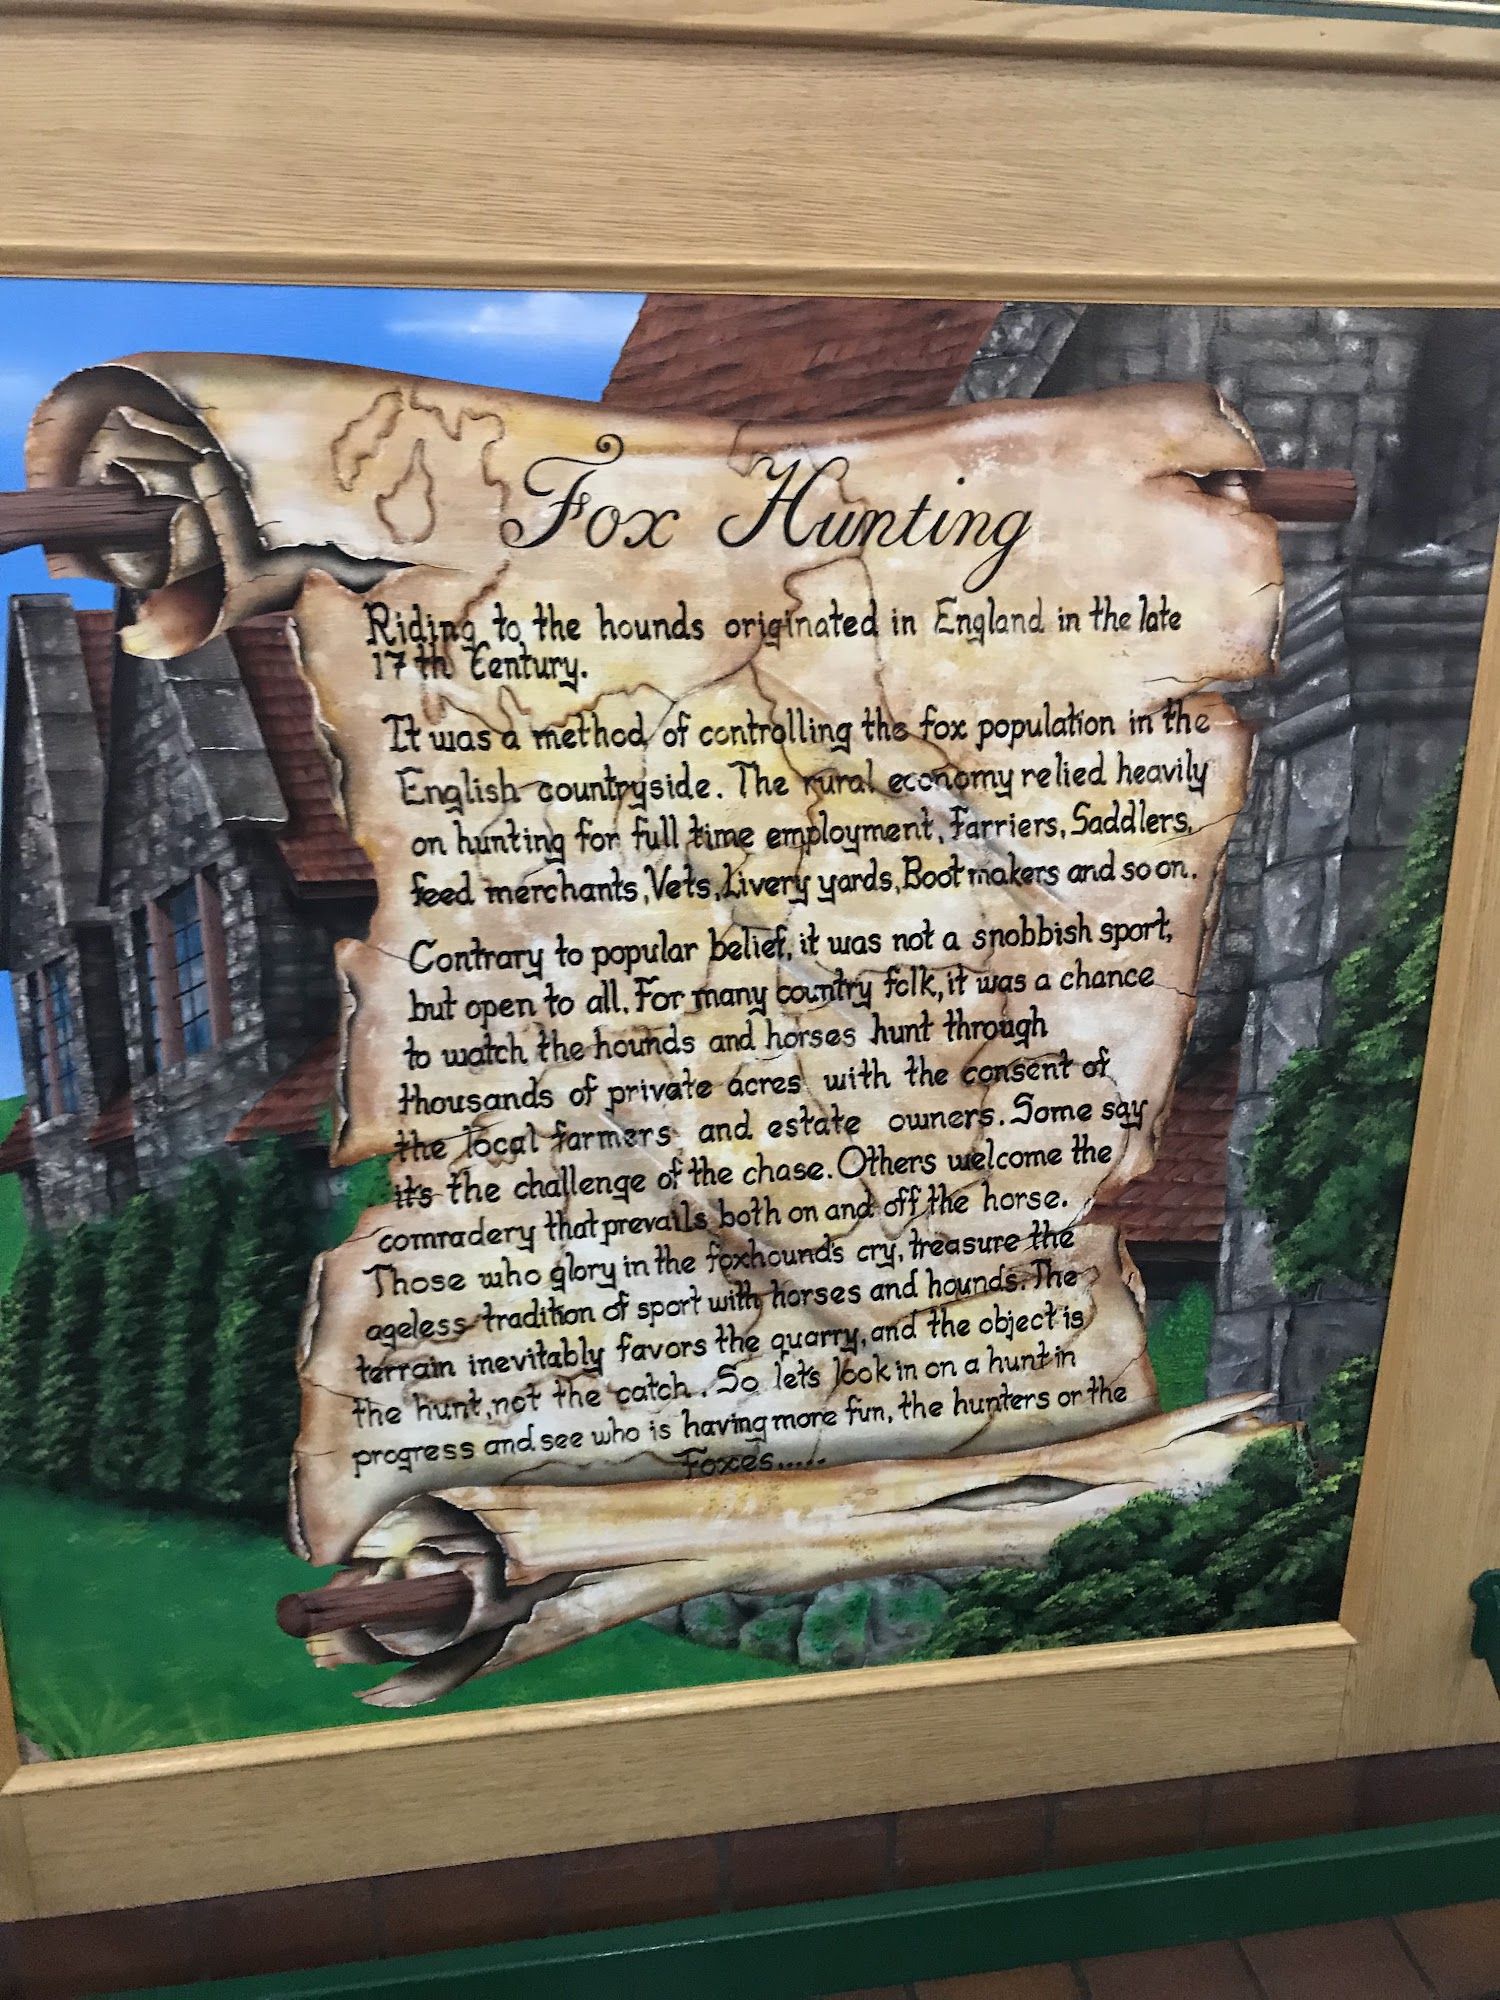 Fox Hunting
Riding to the hounds originated in England in the late
17th Century.
It was a method of controlling the fox population in the
English countryside. The rural economy relied heavily
on hunting for full time employment, Farriers, Saddlers,
feed merchants, Vets, Livery yards, Boot makers and so on.
Contrary to popular belief, it was not a snobbish sport,
but open to all. For many country folk, it was a chance
to watch the hounds and horses hunt through
thousands of private acres with the consent of
the local farmers and estate owners. Some say
it's the challenge of the chase. Others welcome the
comradery that prevails both on and off the horse.
Those who glory in the foxhounds cry, treasure the
ageless tradition of sport with horses and hounds. The
terrain inevitably favors the quarry, and the object is
the hunt, not the catch. So let's look in on a hunt in
progress and see who is having more fun, the hunters or the
Foxes.....